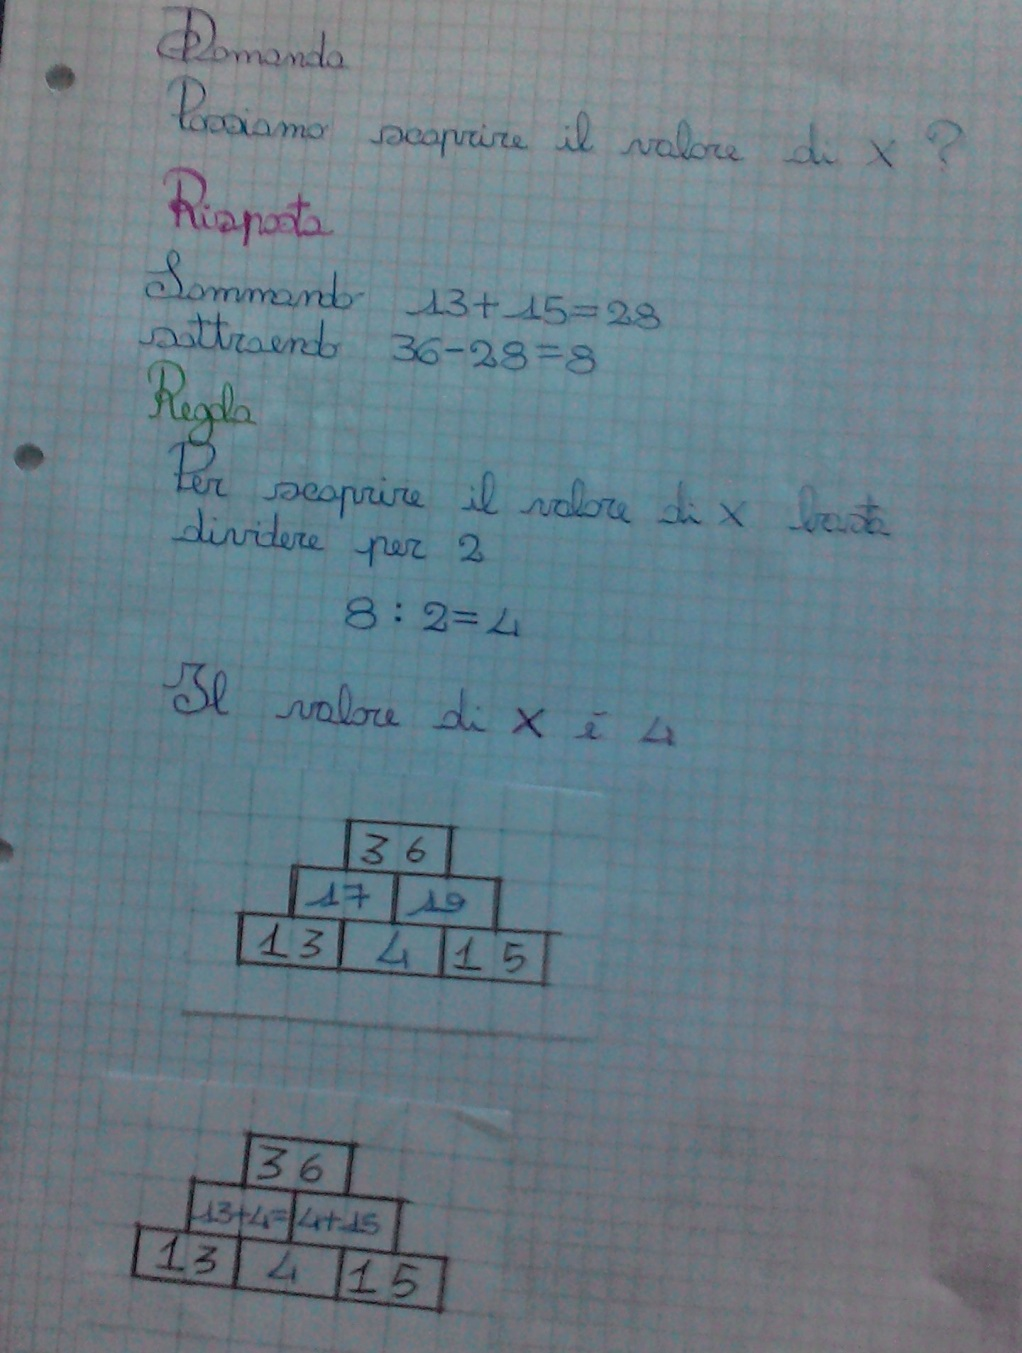 Domanda
Possiamo scoprire il valore di x ?
Risposta
Sommando 13+15=28
sottraendo 36-28=8
Regola
Per scoprire il valore di x basta
dividere per 2
8 : 2=4
Il valore di x è 4
36
17 19
13 4 15
36
13+4= 4+15
13 4 15